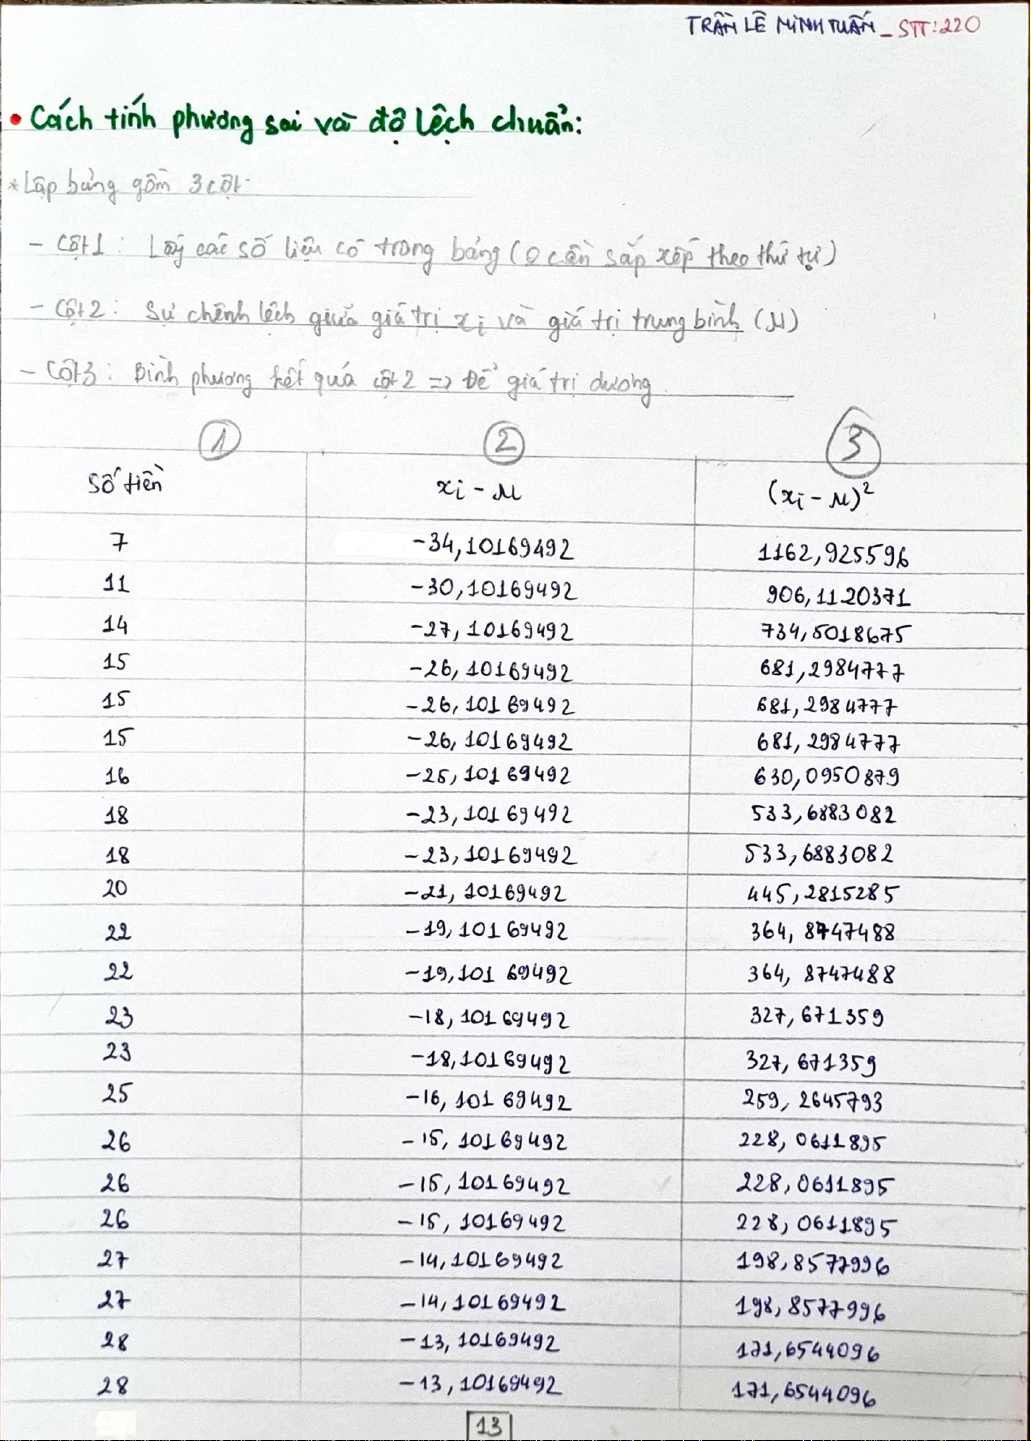 TRẦN LÊ MINH TUẤN - STT: 220
• Cách tính phương sai và độ lệch chuẩn:
* Lập bảng gồm 3 cột.
- Cột 1: Lấy các số liệu có trong bảng (0 cần sắp xếp theo thứ tự)
- Cột 2: Sự chênh lệch giữa giá trị xi và giá trị trung bình (μ)
- Cột 3: Bình phương kết quả cột 2 => Để giá trị dương.
1 2 3
Số tiền xi - μ (xi - μ)²
7 -34,10169492 1162,925596
11 -30,10169492 906,1120371
14 -27,10169492 734,5018675
15 -26,10169492 681,2984777
15 -26,10169492 681,2984777
15 -26,10169492 681,2984777
16 -25,10169492 630,0950879
18 -23,10169492 533,6883082
18 -23,10169492 533,6883082
20 -21,10169492 445,2815285
22 -19,10169492 364,8747488
22 -19,10169492 364,8747488
23 -18,10169492 327,671359
23 -18,10169492 327,671359
25 -16,10169492 259,2645793
26 -15,10169492 228,0611895
26 -15,10169492 228,0611895
26 -15,10169492 228,0611895
27 -14,10169492 198,8577996
27 -14,10169492 198,8577996
28 -13,10169492 171,6544096
28 -13,10169492 171,6544096
13